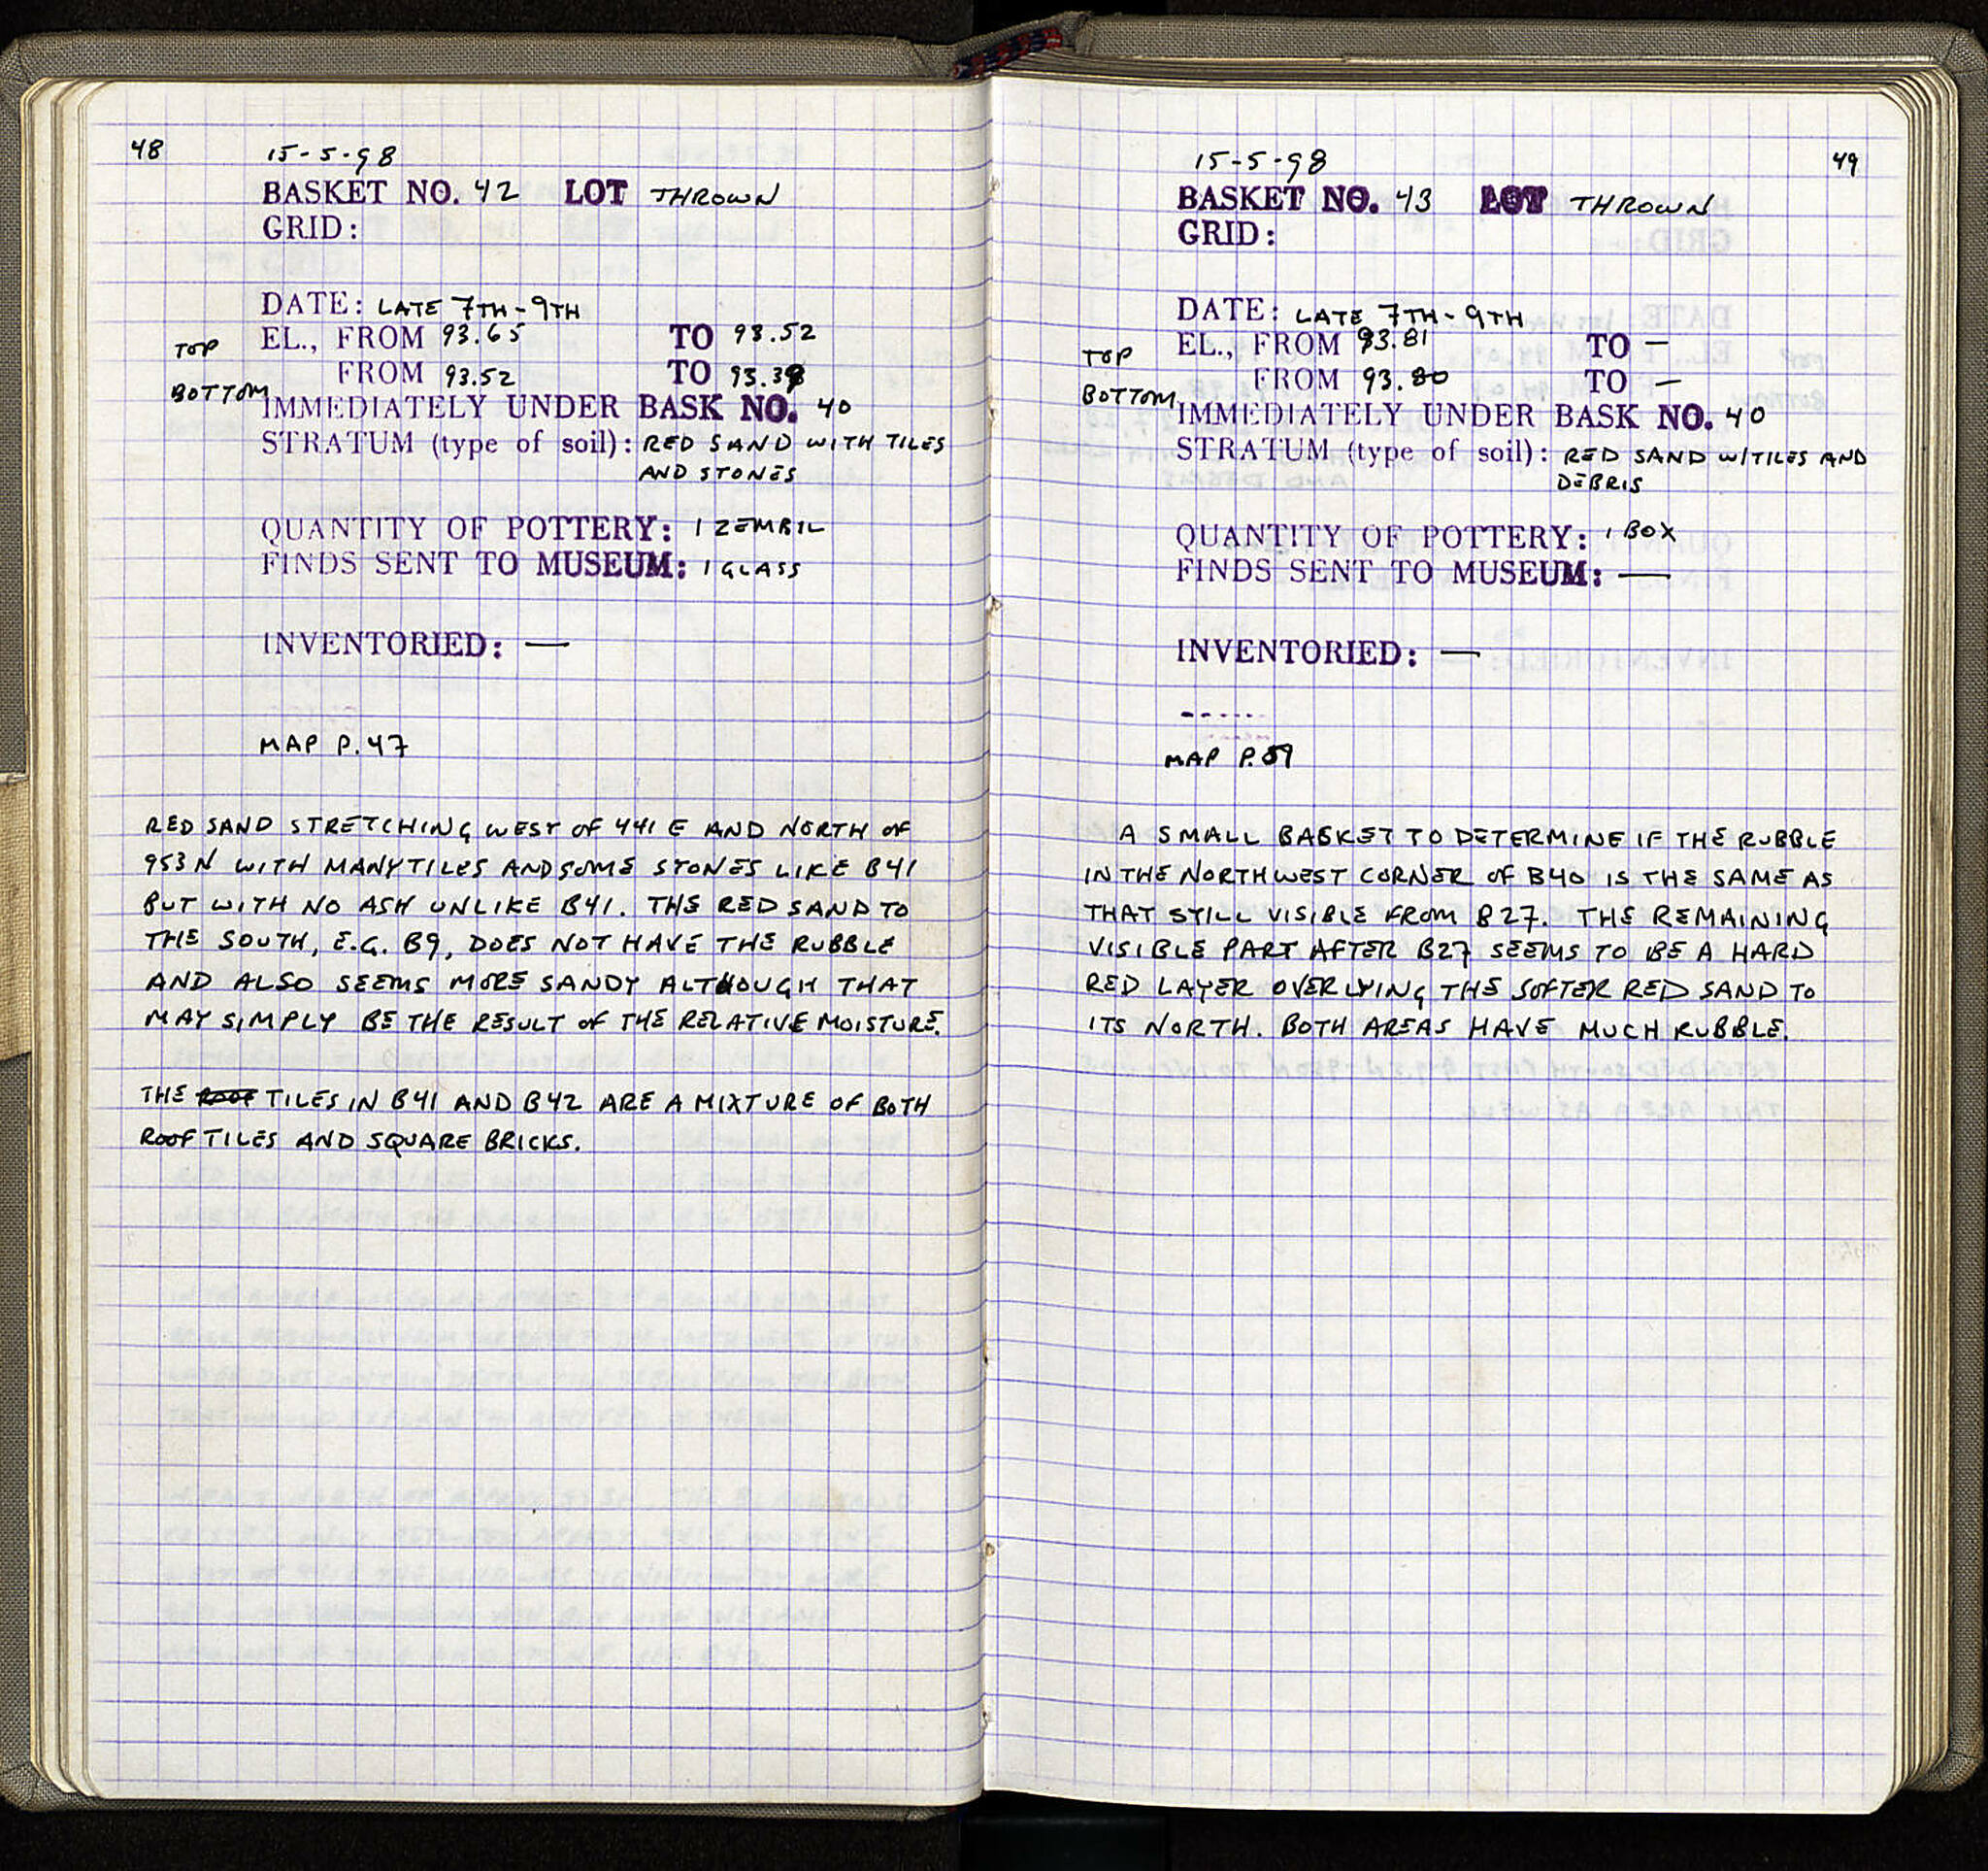 48
15-5-98
BASKET NO. 42 LOT THROWN
GRID:
DATE: LATE 7TH-9TH
TOP EL., FROM 93.65 TO 93.52
BOTTOM FROM 93.52 TO 93.38
IMMEDIATELY UNDER BASK NO. 40
STRATUM (type of soil): RED SAND WITH TILES
AND STONES
QUANTITY OF POTTERY: 1 ZEMBIL
FINDS SENT TO MUSEUM: 1 GLASS
INVENTORIED: —
MAP P.47
RED SAND STRETCHING WEST OF 441 E AND NORTH OF
953 N WITH MANY TILES AND SOME STONES LIKE B41
BUT WITH NO ASH UNLIKE B41. THE RED SAND TO
THE SOUTH, E.G. B9, DOES NOT HAVE THE RUBBLE
AND ALSO SEEMS MORE SANDY ALTHOUGH THAT
MAY SIMPLY BE THE RESULT OF THE RELATIVE MOISTURE.
THE ROOF TILES IN B41 AND B42 ARE A MIXTURE OF BOTH
ROOF TILES AND SQUARE BRICKS.
49
15-5-98
BASKET NO. 43 LOT THROWN
GRID:
DATE: LATE 7TH-9TH
TOP EL., FROM 93.81 TO —
BOTTOM FROM 93.80 TO —
IMMEDIATELY UNDER BASK NO. 40
STRATUM (type of soil): RED SAND W/TILES AND
DEBRIS
QUANTITY OF POTTERY: 1 BOX
FINDS SENT TO MUSEUM: —
INVENTORIED: —
MAP P.
A SMALL BASKET TO DETERMINE IF THE RUBBLE
IN THE NORTHWEST CORNER OF B40 IS THE SAME AS
THAT STILL VISIBLE FROM B27. THE REMAINING
VISIBLE PART AFTER B27 SEEMS TO BE A HARD
RED LAYER OVERLYING THE SOFTER RED SAND TO
ITS NORTH. BOTH AREAS HAVE MUCH RUBBLE.